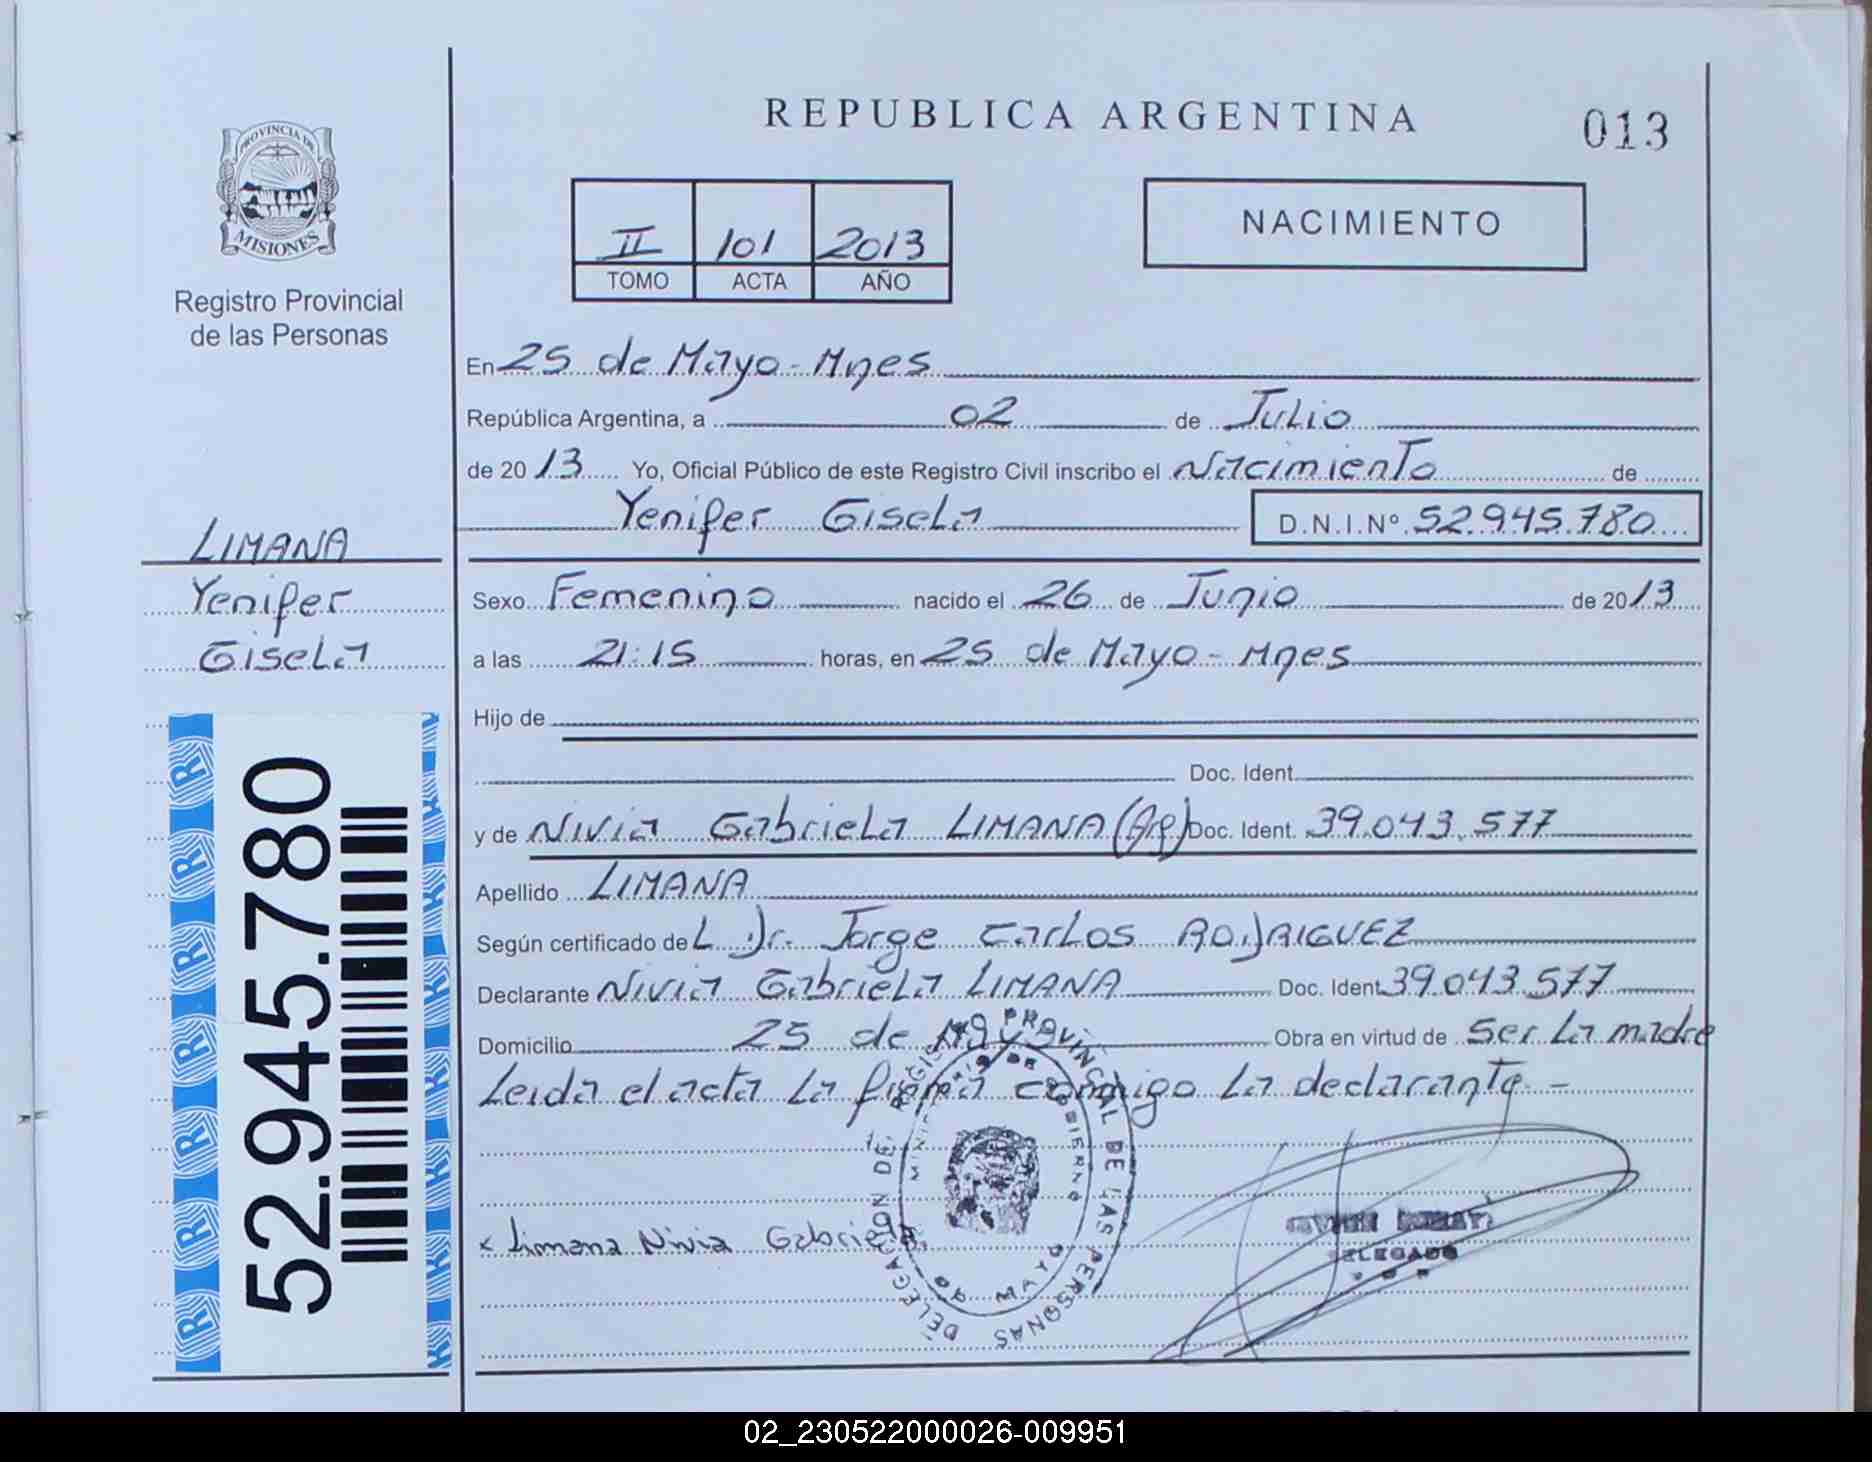 REPUBLICA ARGENTINA
013
PROVINCIA DE
MISIONES
Registro Provincial
de las Personas
II 101 2013
TOMO ACTA AÑO
NACIMIENTO
En 25 de Mayo - Mnes
República Argentina, a 02 de Julio
de 20 13 Yo, Oficial Público de este Registro Civil inscribo el Nacimiento de
Yenifer Gisela D.N.I.Nº 52.945.780
LIMANA
Yenifer
Gisela
Sexo Femenino nacido el 26 de Junio de 20 13
a las 21:15 horas, en 25 de Mayo - Mnes
Hijo de
Doc. Ident.
y de Nivia Gabriela LIMANA (Arg) Doc. Ident. 39.043.577
Apellido LIMANA
Según certificado del Dr. Jorge Carlos RODRIGUEZ
Declarante Nivia Gabriela LIMANA Doc. Ident 39.043.577
Domicilio 25 de Mayo Obra en virtud de Ser La madre
Leida el acta La firma conmigo La declarante -
52.945.780
R R R R R R R
DELEGACION DEL REGISTRO PROVINCIAL DE LAS PERSONAS
MINISTERIO DE GOBIERNO
MAYO
x Limana Nivia Gabriela
DELEGADO
02_230522000026-009951